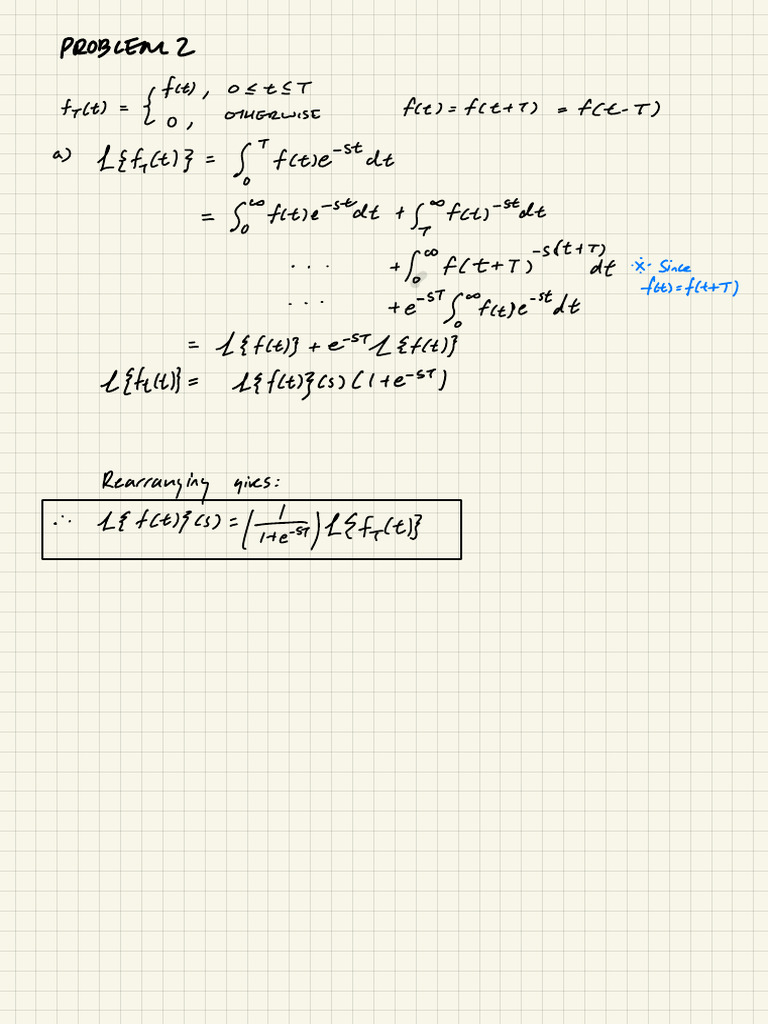 PROBLEM 2
f_T(t) = { f(t), 0 ≤ t ≤ T
0, OTHERWISE
f(t) = f(t+T) = f(t-T)
a) L{f_T(t)} = ∫_0^T f(t)e^{-st} dt
= ∫_0^∞ f(t)e^{-st} dt + ∫_T^∞ f(t)^{-st} dt
... + ∫_0^∞ f(t+T)^{-s(t+T)} dt ※ Since
f(t) = f(t+T)
... + e^{-sT} ∫_0^∞ f(t)e^{-st} dt
= L{f(t)} + e^{-sT} L{f(t)}
L{f_t(t)} = L{f(t)}(s) (1+e^{-sT})
Rearranging gives:
∴ L{f(t)}(s) = (1/(1+e^{-sT})) L{f_T(t)}